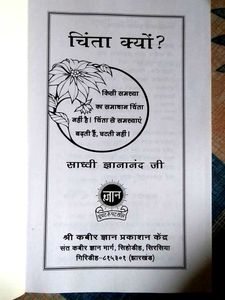 चिंता क्यों?
किसी समस्या
का समाधान चिंता
नहीं है। चिंता से समस्याएं
बढ़ती हैं, घटती नहीं।
साध्वी ज्ञानानंद जी
ज्ञान
श्री कबीर ज्ञान प्रकाशन केंद्र
संत कबीर ज्ञान मार्ग, सिहोडीह, सिरसिया
गिरिडीह-८१५३०१ (झारखंड)